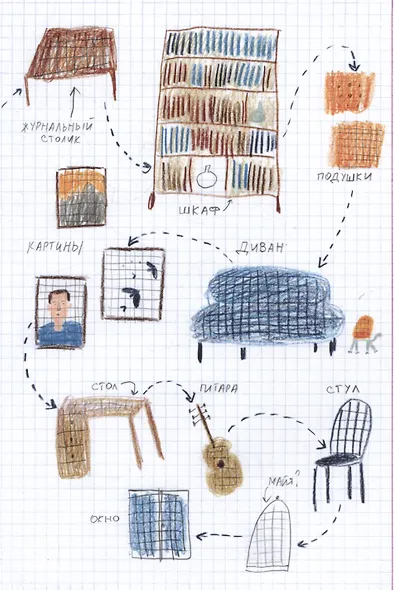 ЖУРНАЛЬНЫЙ
СТОЛИК
ШКАФ
ПОДУШКИ
КАРТИНЫ
ДИВАН
СТОЛ
ГИТАРА
СТУЛ
МАЙЯ?
ОКНО